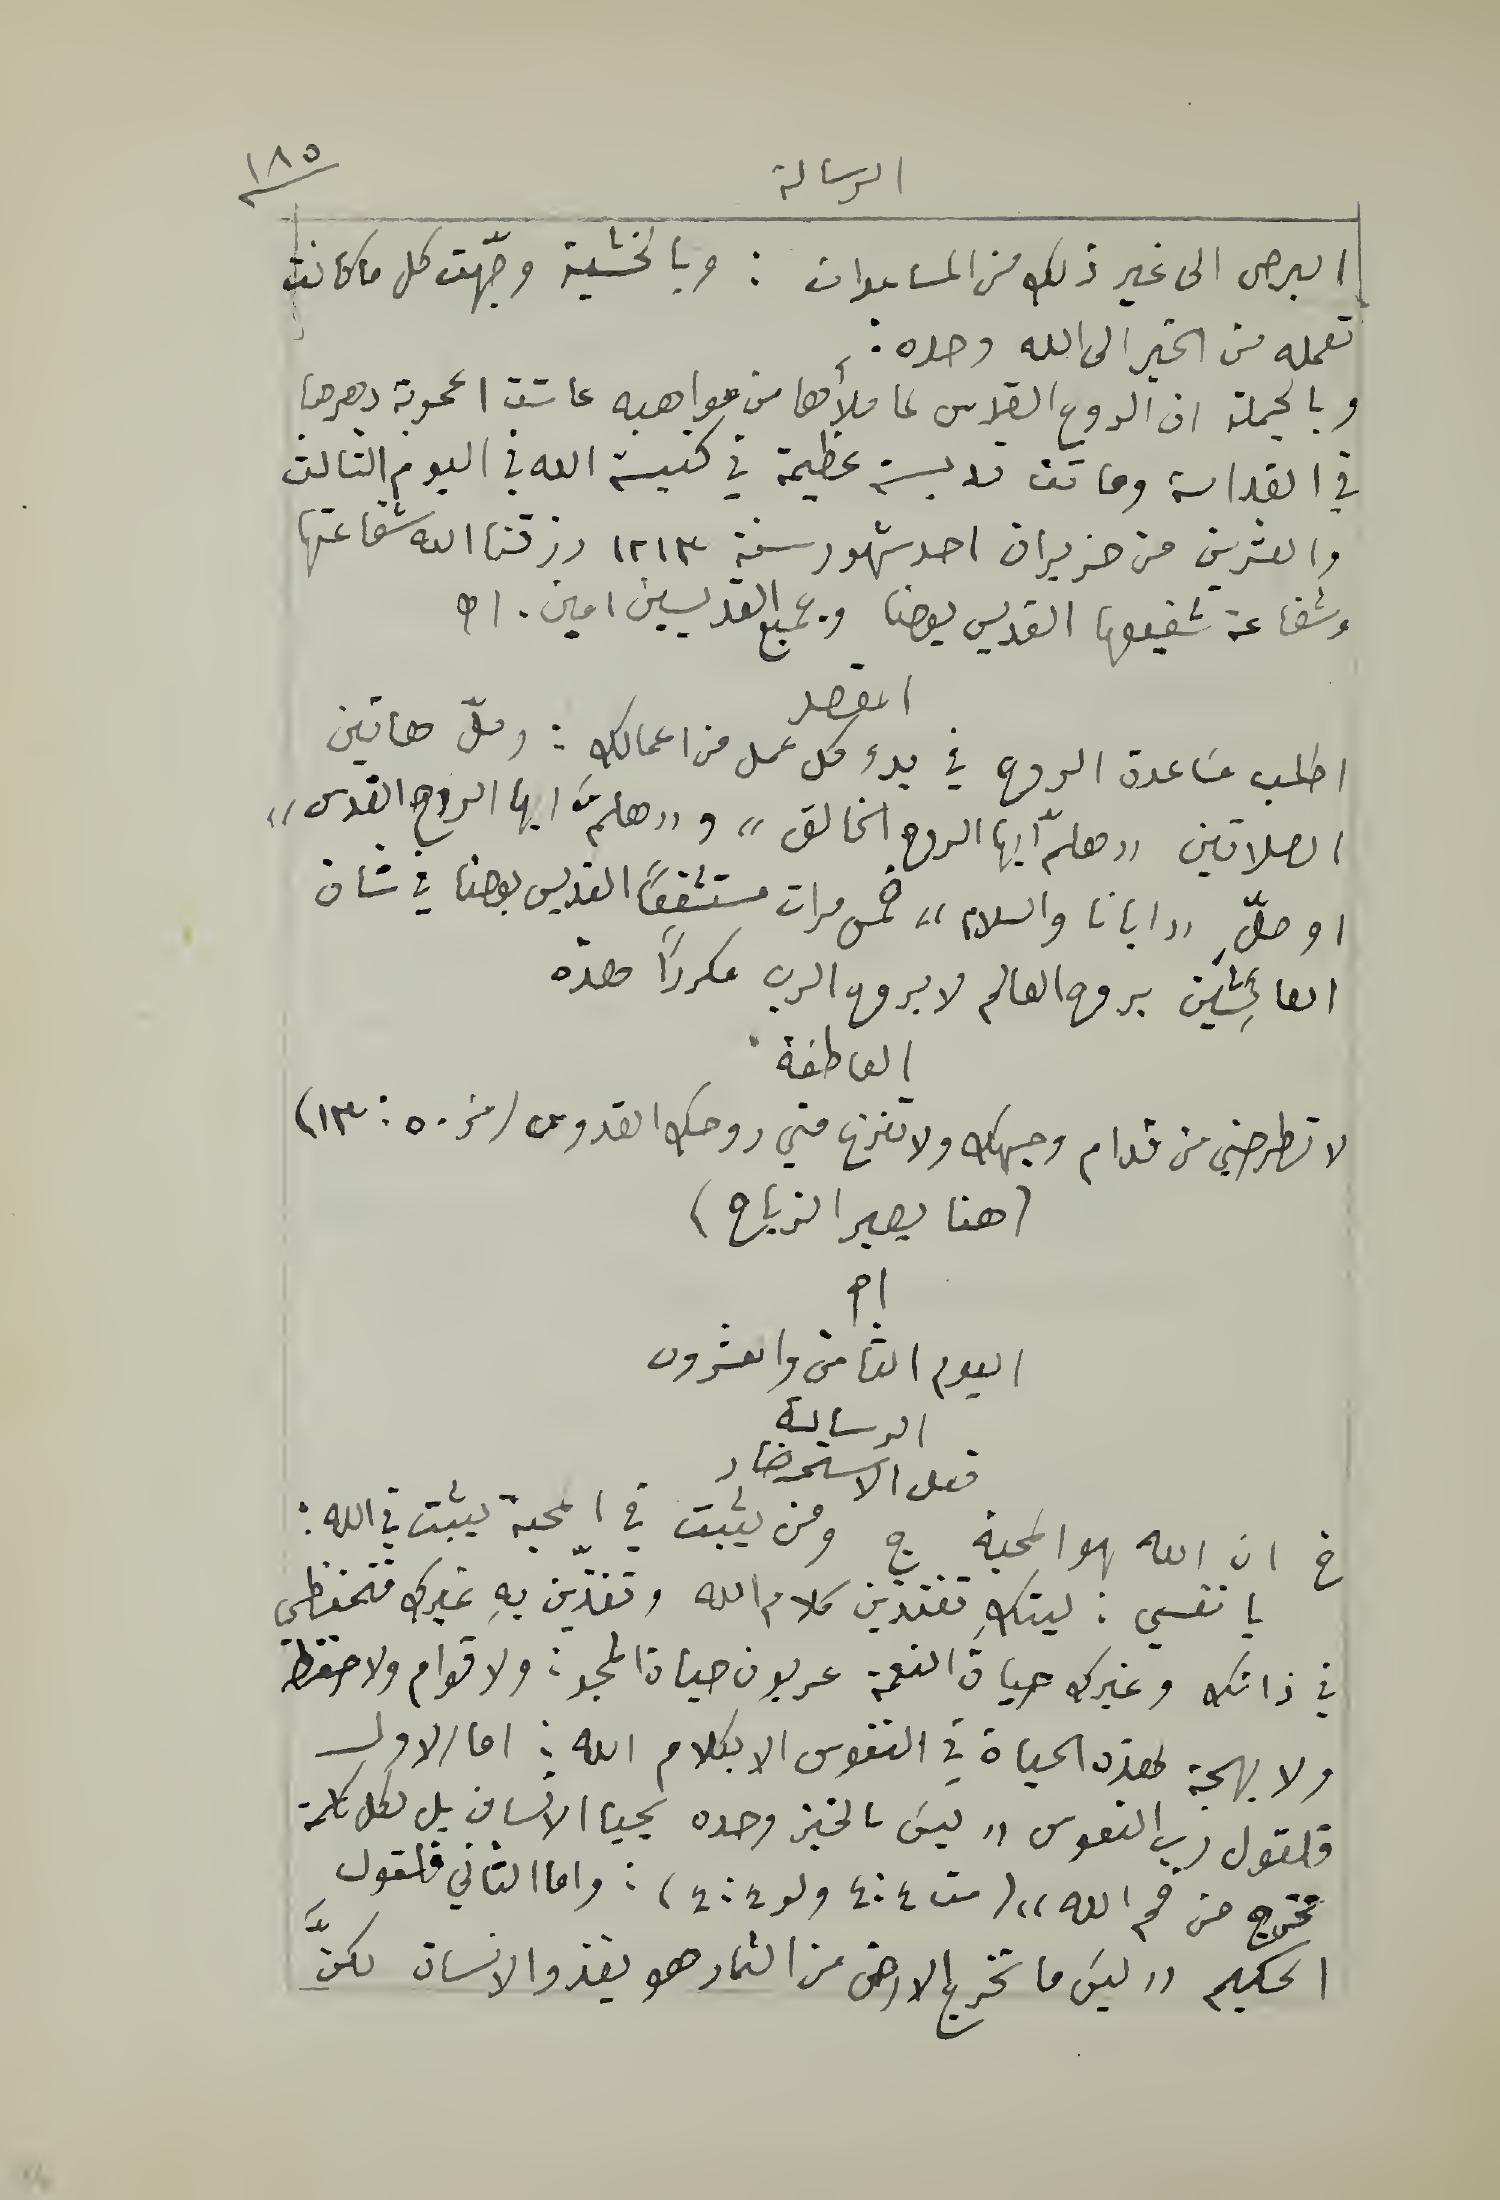 الرسالة ١٨٥
البرص الى غير ذلك من المساعدات : وبالخشية وجّهت كل ما كانت
تعمله من الخير الى الله وحده :
وبالجملة ان الروح القدس لما ملأها من مواهبه عاشت اعجوبة دهرها
في القداسة وماتت قديسة عظيمة في كنيسة الله في اليوم الثالث
والعشرين من حزيران احد شهور سنة ١٢١٣ رزقنا الله شفاعتها
وشفاعة شفيعها القديس يوحنا وجميع القديسين امين .
المقصد
اطلب مساعدة الروح في بدء كل عمل من اعمالك : وصلّ هاتين
الصلاتين « هلمّ ايها الروح الخالق » و « هلمّ ايها الروح القدس »
او صلّ « ابانا والسلام » خمس مرات مستشفعًا القديس يوحنا في شان
العائِشين بروح العالم لا بروح الرب مكررًا هذه
العاطفة
لا تطرحني من قدام وجهك ولا تنزع مني روحك القدوس (مز ٥٠ : ١٣)
(هنا يصير الزياح)
اليوم الثامن والعشرون
الرسالة
فعل الاستحضار
خ ان الله هو المحبة ج ومن يثبت في المحبة يثبت في الله :
يا نفسي : ليتكِ تغتذين كلام الله وتغذّين بهِ غيرك فتحفظي
في ذاتك وغيرك حياة النعمة عربون حياة المجد : ولا قوام ولا حفظ
ولا بهجة لهذه الحياة في النفوس الا بكلام الله : اما الاول
فلقول رب النفوس « ليس بالخبز وحده يحيا الانسان بل بكل كلمة
تخرج من فم الله » (مت ٤ : ٤ ولو ٤ : ٤) : واما الثاني فلقول
الحكيم « ليس ما تخرج الارض من الثمار هو يغذو الانسان لكنَّ